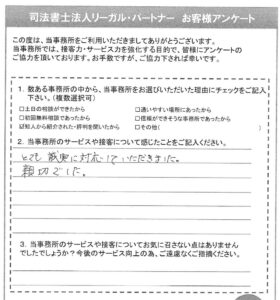 司法書士法人リーガル・パートナー　お客様アンケート
この度は、当事務所をご利用いただきましてありがとうございます。
当事務所では、接客力・サービス力を強化する目的で、皆様にアンケートの
ご協力を頂いております。お手数ですが、ご協力下されば幸いです。
1. 数ある事務所の中から、当事務所をお選びいただいた理由にチェックをご記入
下さい。(複数選択可)
□土日の相談ができたから　□通いやすい場所にあったから
□初回無料相談であったから　□信頼ができそうな事務所であったから
☑知人から紹介された・評判を聞いたから　□その他(　　)
2. 当事務所のサービスや接客について感じたことをご記入ください。
とても誠実に対応していただきました。
親切でした。
3. 当事務所のサービスや接客についてお気に召さない点はありません
でしたでしょうか？今後のサービス向上の為、ご遠慮なくご指摘ください。